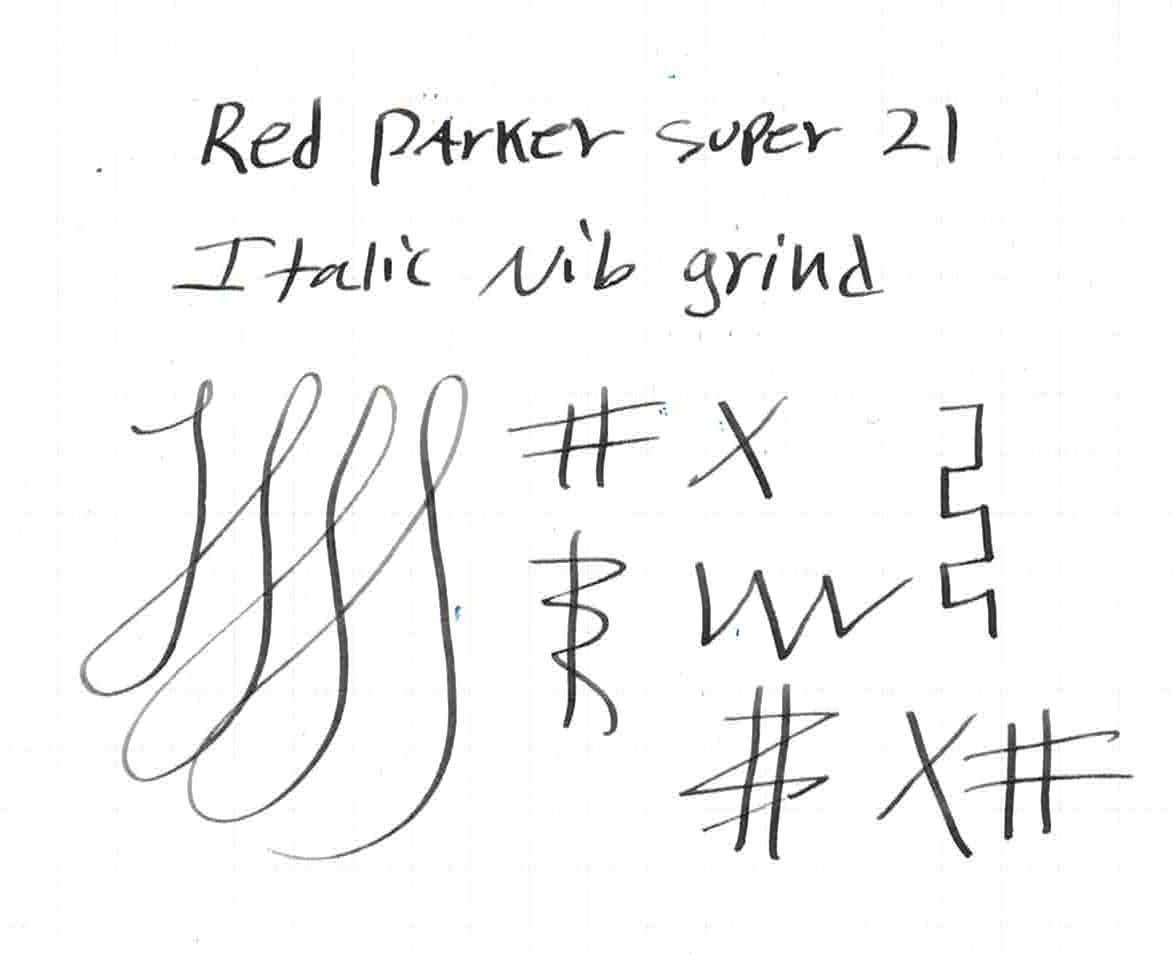 Red Parker super 21
Italic Nib grind
# X
X #